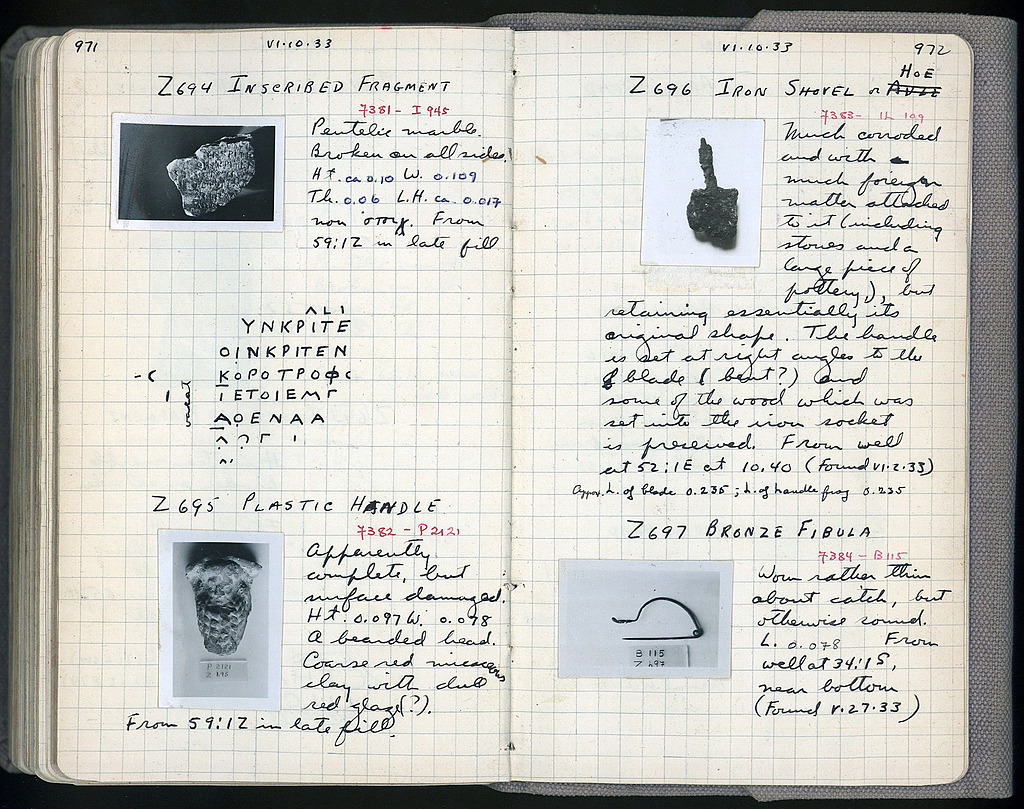 971
VI·10·33
Z694 INSCRIBED FRAGMENT
7381- I 945
Pentelic marble.
Broken on all sides.
Ht. ca 0.10 W. 0.109
Th. 0.06 L.H. ca. 0.017
non στοιχ. From
59:ΙΖ in late fill
ΛLI
YNKPITE
OINKPITEN
KOPOTPOΦC
vacat
ΙETOIEMΓ
AOENAA
Z695 PLASTIC HANDLE
7382 - P2121
Apparently
complete, but
surface damaged.
Ht. 0.097 W. 0.078
A bearded head.
Coarse red micaceous
clay with dull
red glaze(?).
P 2121
From 59:ΙΖ in late fill.
VI·10·33
972
Z696 IRON SHOVEL or HOE
7383- IL 109
Much corroded
and with
much foreign
matter attached
to it (including
stones and a
large piece of
pottery), but
retaining essentially its
original shape. The handle
is set at right angles to the
blade (bent?) and
some of the wood which was
set into the iron socket
is preserved. From well
at 52:ΙΕ at 10.40 (Found VI·2·33)
Approx. L. of blade 0.235; L. of handle frag 0.235
Z697 BRONZE FIBULA
7384- B115
Worn rather thin
about catch, but
otherwise sound.
L. 0.078 From
well at 34:ΙS,
near bottom
(Found V·27·33)
B 115
Z 697